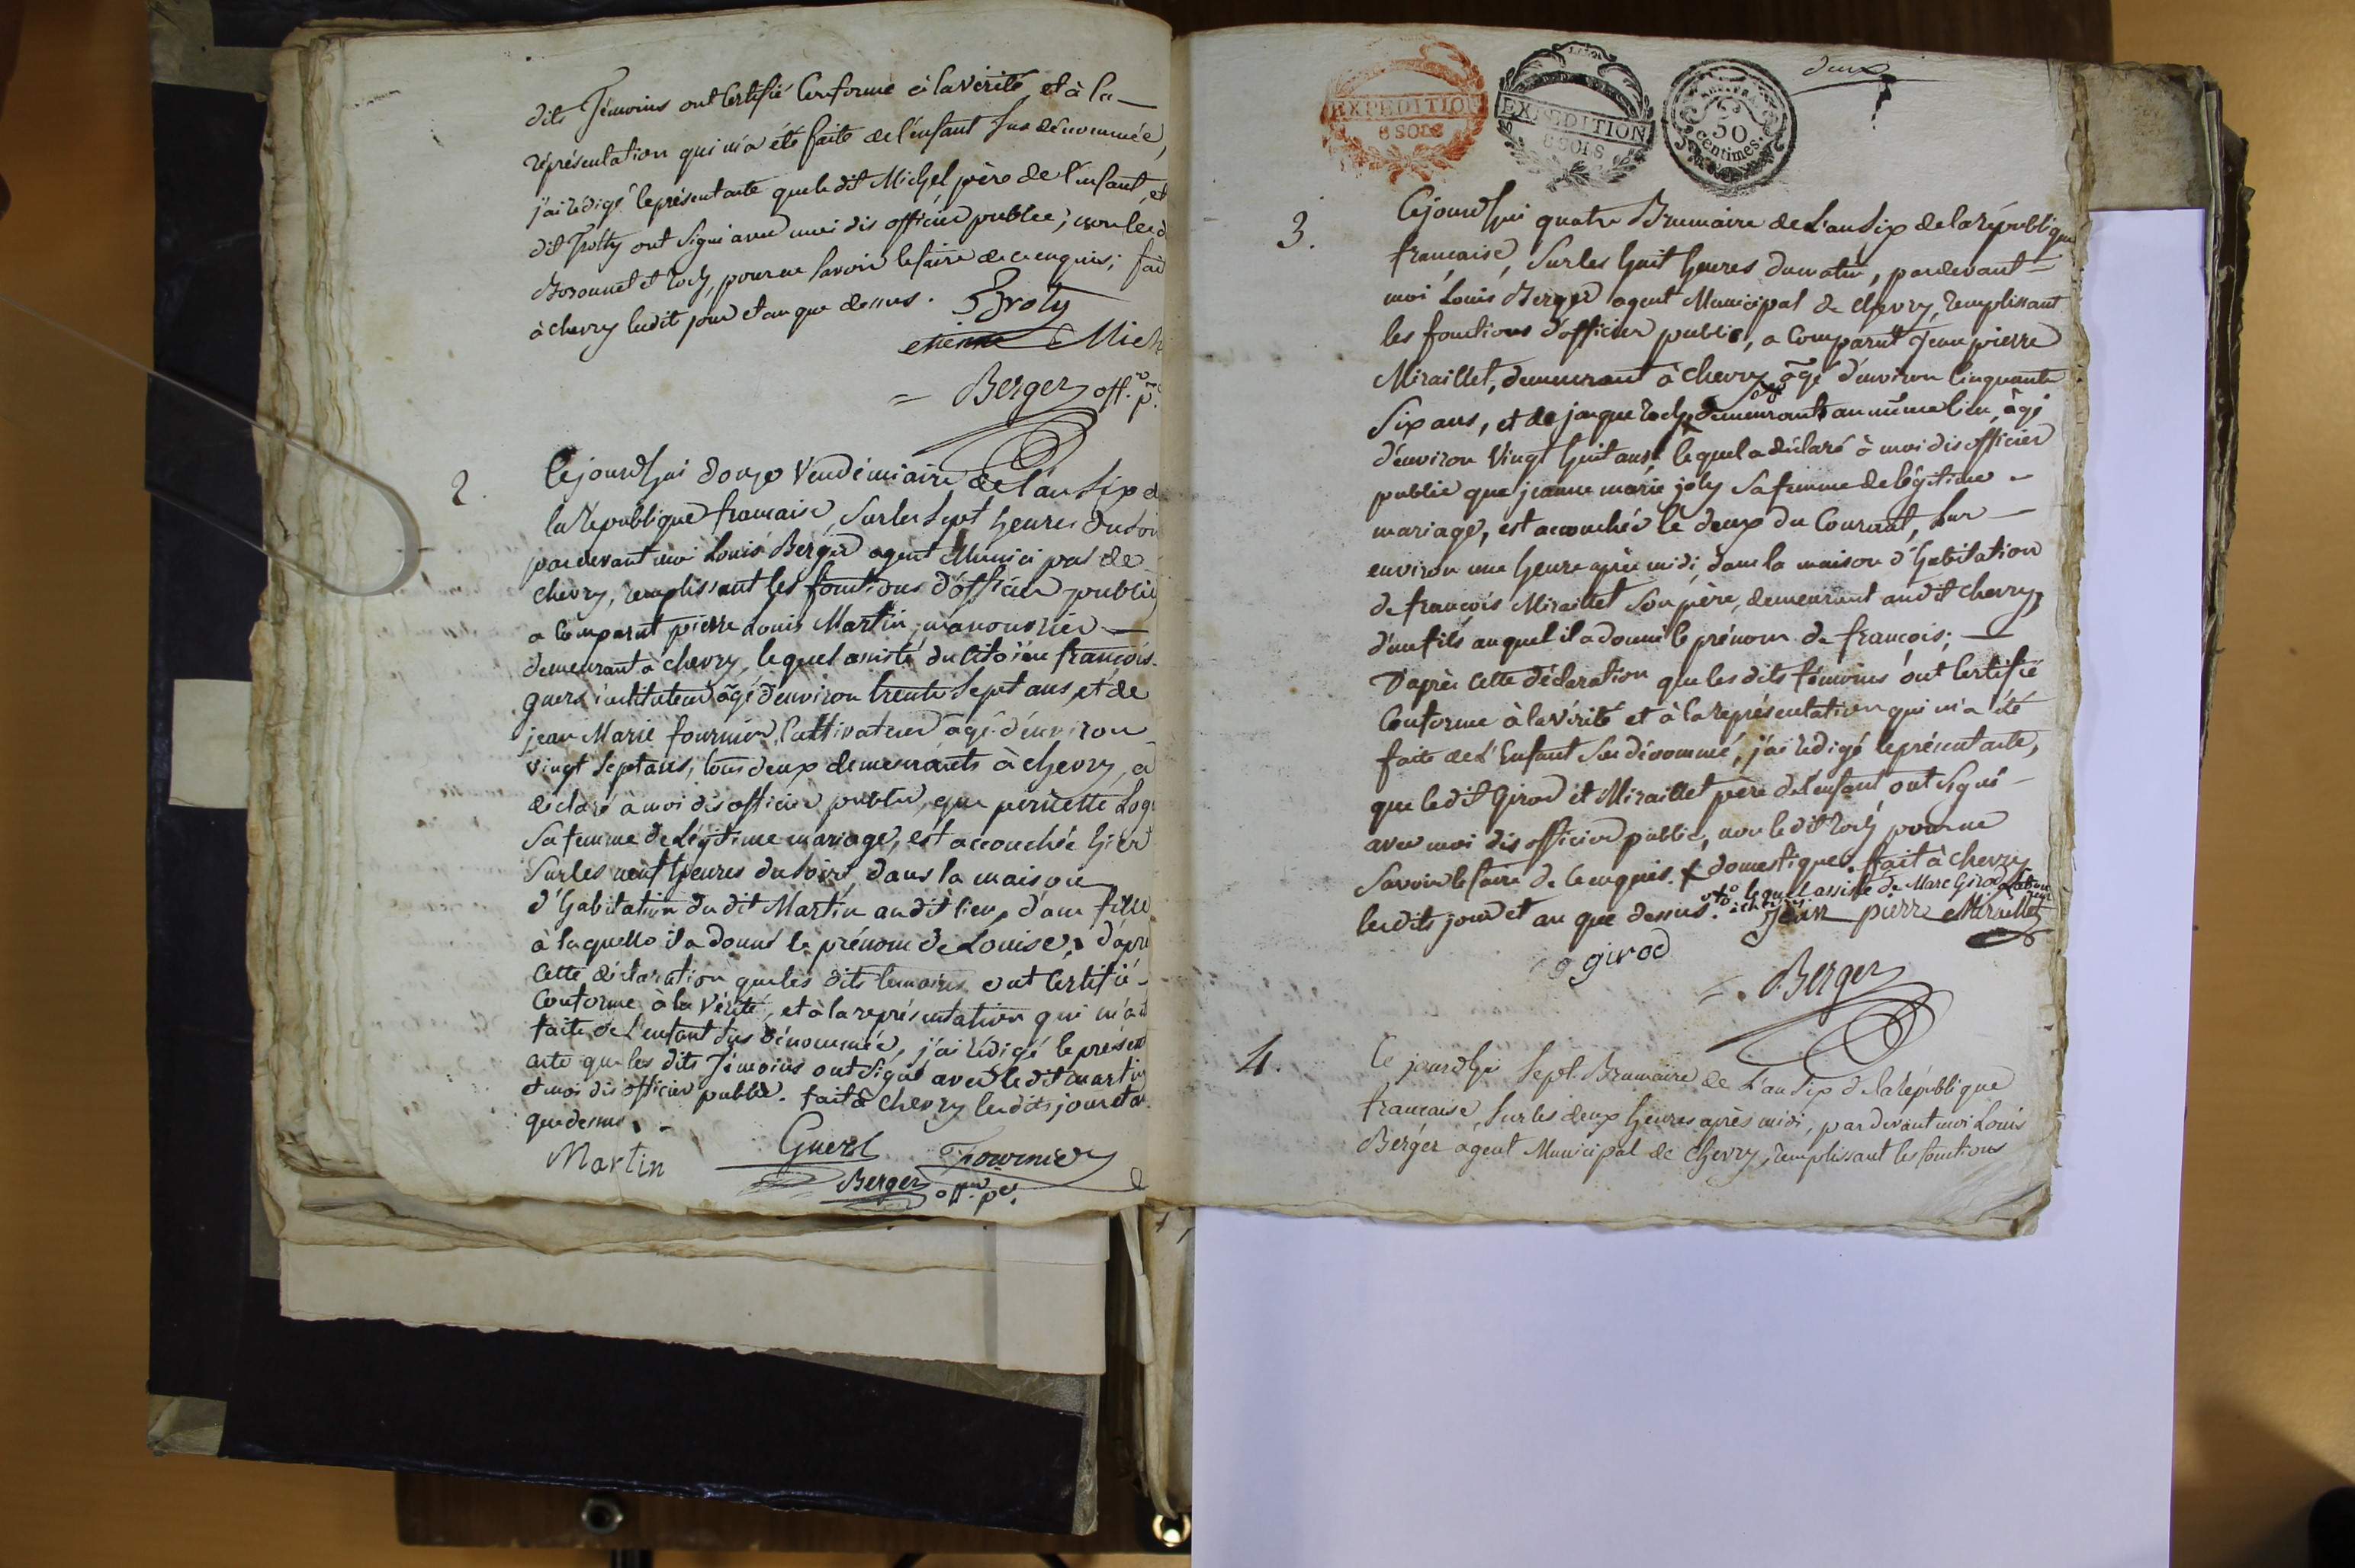 dits Témoins ont Certifié Conforme à la Vérité, et à la —
réprésentation qui m'a été faite de l'enfant sus dénommée,
j'ai rédigé le présent acte que le dit Michel père de l'enfant, et
dit Frotty ont signé avec moi dis officier public; non led
Bozonnet et Rody, pour ne savoir le faire de ce enquis; fait
à chevry ledit jour et an que dessus.
etienne Mich
Berger off.r p.
2.
Cejourd'hui douze Vendémiaire de l'an Six d
la République francaise, Sur les Sept heures du soir
par devant moi Louis Berger agent Municipal de
chevry, remplissant les fonctions d'officier public
a Comparut pierre Louis Martin, manouvrier —
demeurant à chevry, lequel assisté du Citoïen françois
guers instituteur âgé d'environ trente Sept ans, et de
jean Marie fournier, Cultivateur âgé d'environ
vingt Sept ans, tous deux demeurants à chevry, a
déclaré à moi dis officier public, que pernette
Sa femme de Légitime mariage, est accouchée hier
Sur les neuf heures du soir, dans la maison
d'habitation du dit Martin au dit lieu, d'une fille
à laquelle il a donné le prénom de Louise, d'apré
Cette déclaration que les dits temoins ont Certifié
Conforme à la Vérité, et à la représentation qui m'a é
faite de L'enfant sus dénommée, j'ai rédigé le présen
acte que les dits Témoins ont signé avec le dit martin
et moi dis officier public. fait à chevry lesdits jour et a
que dessus.
Martin Guers Fournier
Berger off.r p.
deux
EXPEDITION 8 SOLS
EXPEDITION 8 SOLS
50 Centimes
3.
Cejourd'hui quatre Brumaire de L'an Six de la république
française, Sur les huit heures du matin, par devant =
moi Louis Berger agent Municipal de chevry, remplissant
les fonctions d'officier public, a Comparut Jean pierre
Miraillet, demeurant à chevry, âgé d'environ Cinquante
Six ans, et de jacque Rody demeurant au même lieu, âgé
d'environ Vingt huit ans, lequel a déclaré à moi dis officier
public que jeanne marie joly Sa femme de légitime
mariage, est accouchée le deux du Courant, Sur —
environ une heure après midi, dans la maison d'habitation
de françois Miraillet Son père, demeurant audit chevry,
d'un fils auquel il a donné le prénom de françois; —
D'après Cette déclaration que les dits témoins ont Certifié
Conforme à la Vérité et à la représentation qui m'a été
faite de L'Enfant Sus dénommé, j'ai rédigé le présent acte,
que le dit Girod et Miraillet père de l'enfant ont signé —
avec moi dis officier public, non le dit Rody pour ne
Savoir le faire de ce enquis. x domestique. fait à chevry
lesdits jour et an que dessus. lequel assisté de Marc Girod
Jean pierre Miraillet
girod
Berger
4.
Ce jourd'hui Sept Brumaire de L'an Six de la République
francaise, Sur les deux heures après midi, par devant moi Louis
Berger agent Municipal de Chevry, remplissant les fonctions